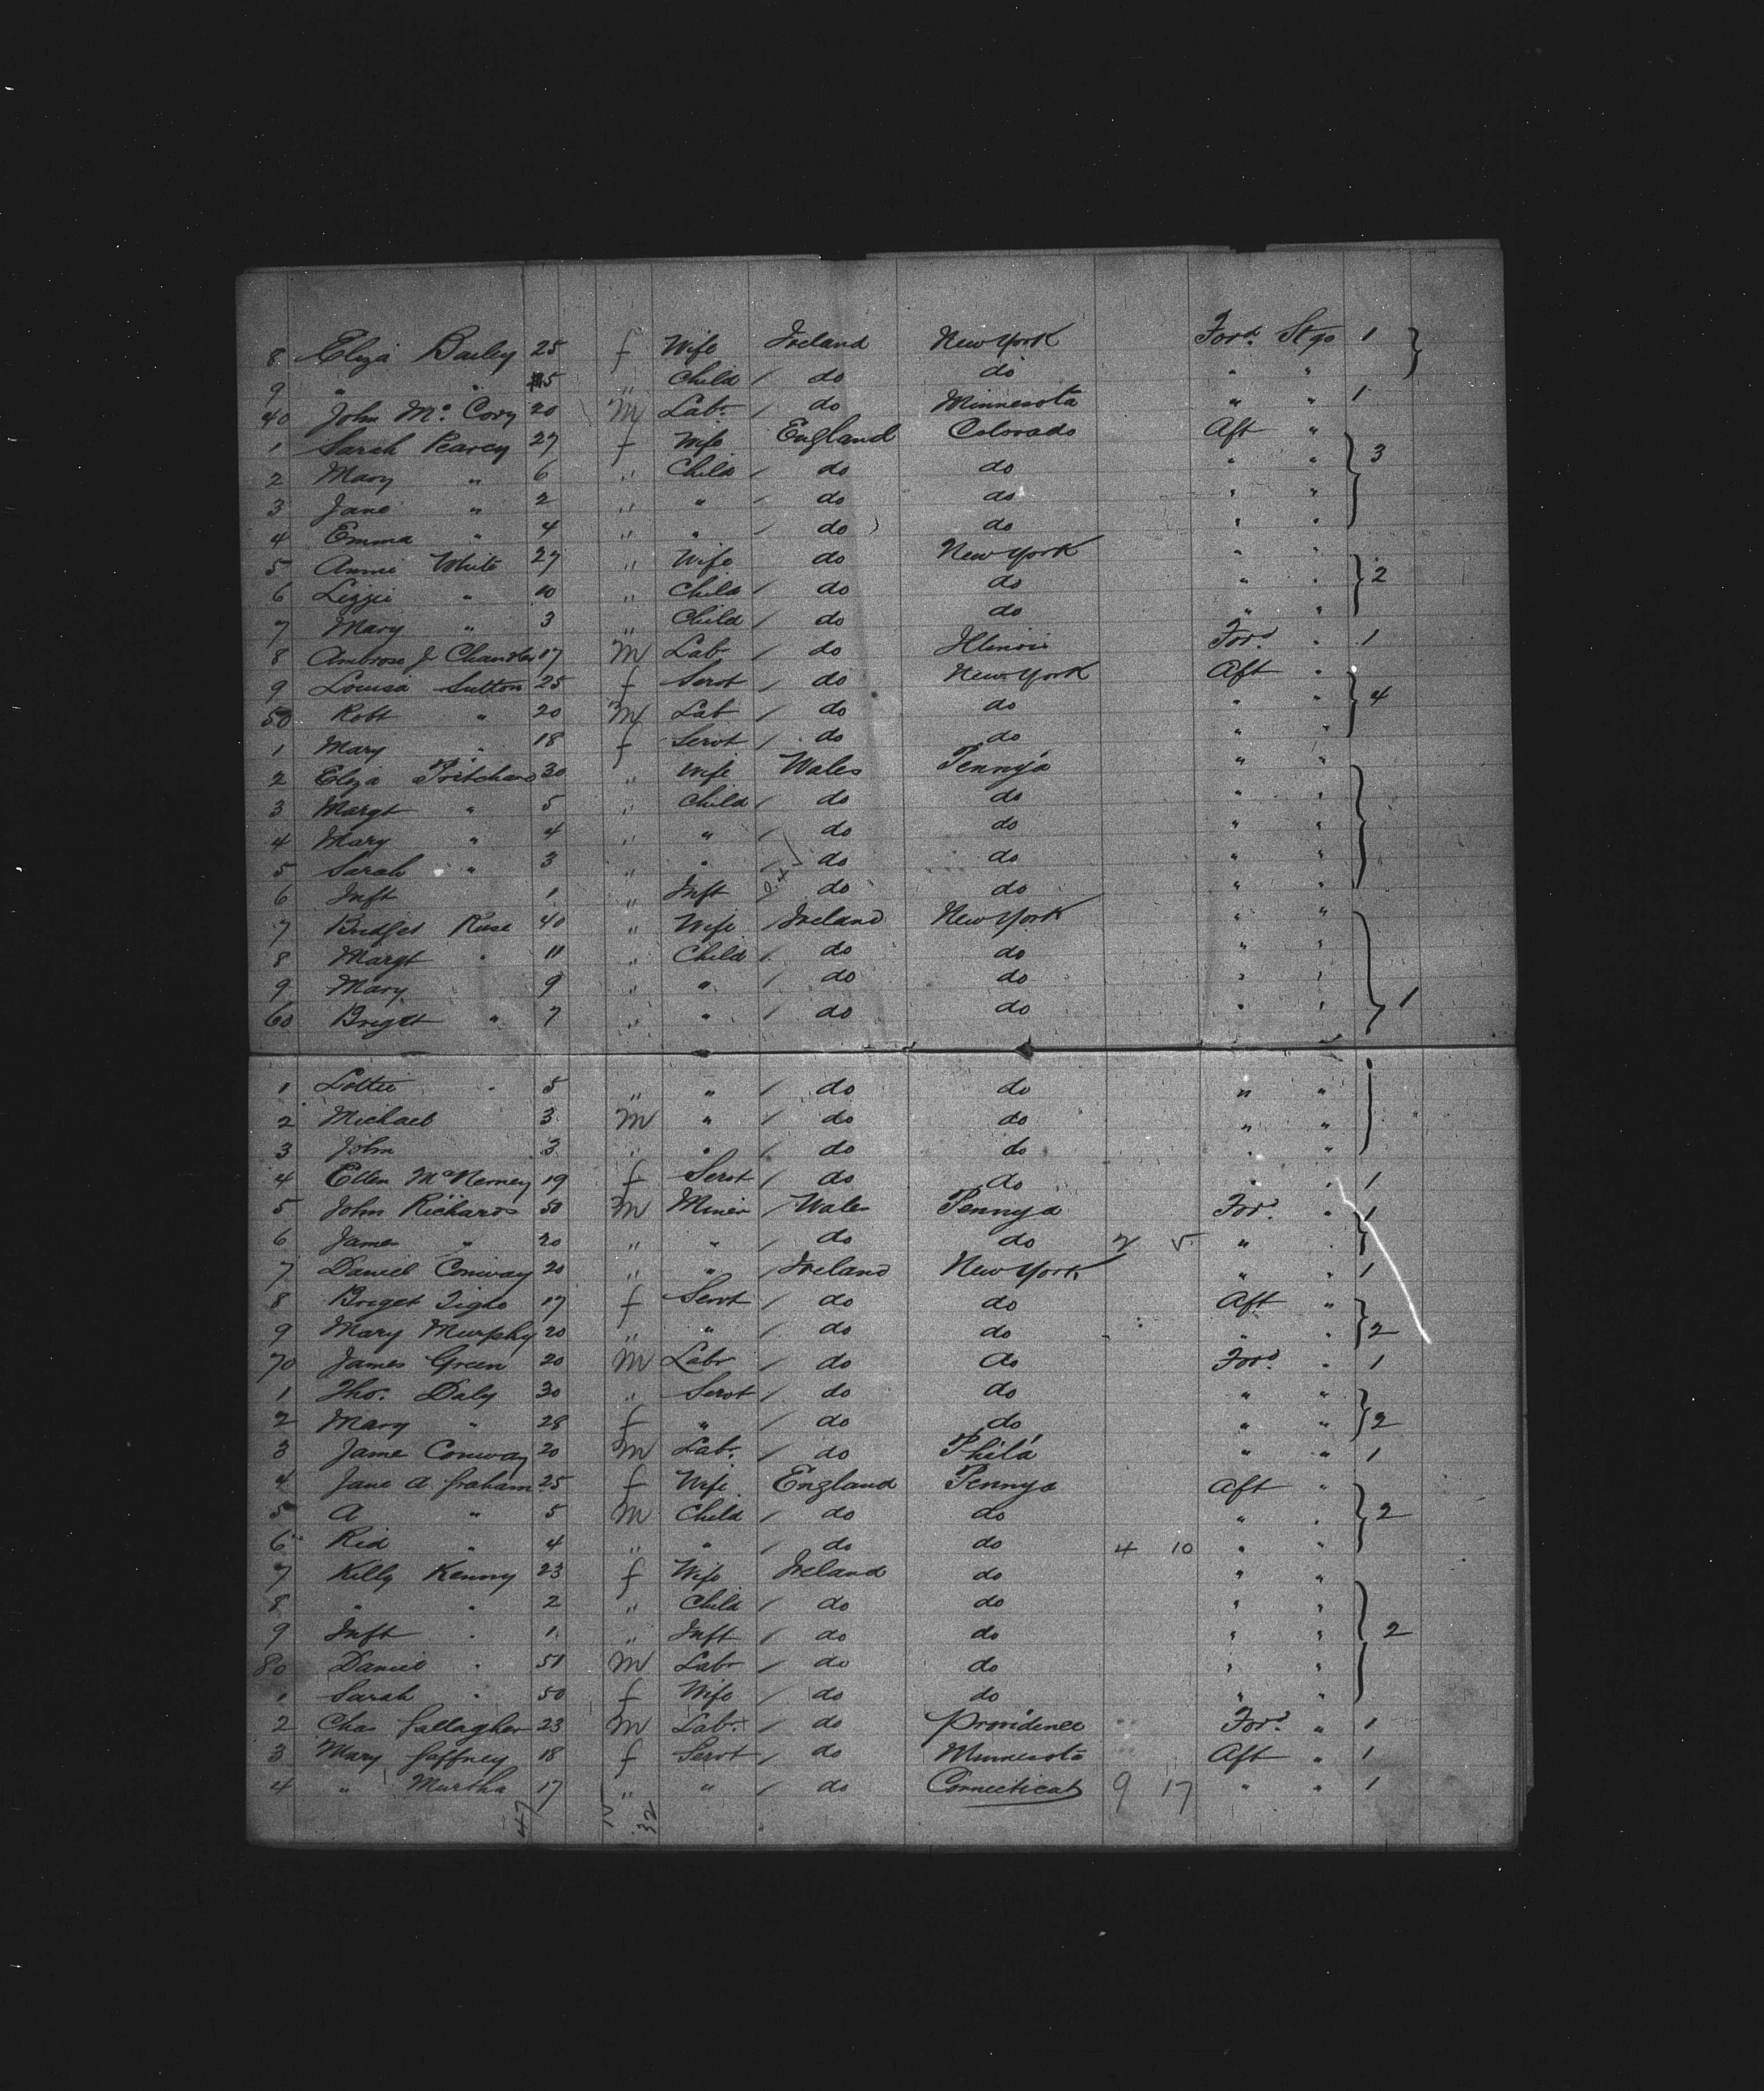 8 Eliza Bailey 25 f Wife Ireland New York Ford. Stge 1
9 " " 5 " Child / do do " "
40 John Mc. Cory 20 M Labr. / do Minnesota " " 1
1 Sarah Pearcy 27 f Wife England Colorado Aft "
2 Mary " 6 " Child / do do " " 3
3 Jane " 2 " " / do do " "
4 Emma " 4 " " / do do " "
5 Annie White 27 " Wife do New York " "
6 Lizzie " 10 " Child / do do " " 2
7 Mary " 3 " Child / do do " "
8 Ambrose J Chandler 17 M Lab / do Illinois Ford. " 1
9 Louisa Sutton 25 f Servt / do New York Aft "
50 Robt " 20 M Lab / do do " " 4
1 Mary " 18 f Servt / do do " "
2 Eliza Pritchard 30 " Wife Wales Pennya " "
3 Margt " 5 " Child / do do " "
4 Mary " 4 " " / do do " "
5 Sarah " 3 " " / do do " "
6 Inft 1 " Inft do do " "
7 Bridget Ruse 40 " Wife / Ireland New York " "
8 Margt " 11 " Child / do do " "
9 Mary 9 " " / do do " "
60 Briget " 7 " " / do do " " 1
1 Lottie " 5 " " / do do " "
2 Michael 3 M " / do do " "
3 John 3 " " / do do " "
4 Ellen McNerney 19 f Servt / do do " " 1
5 John Richards 50 M Miner / Wales Pennya Ford. " 1
6 James " 20 " " / do do 2 5 " "
7 Daniel Conway 20 " " / Ireland New York " " 1
8 Briget Tighe 17 f Servt / do do Aft "
9 Mary Murphy 20 " " / do do " " 2
70 James Green 20 M Labr / do do Ford. " 1
1 Tho. Daly 30 " Servt / do do " "
2 Mary " 28 f " / do do " " 2
3 Jame Conway 20 M Lab. / do Phila " " 1
4 Jane A Graham 25 f Wife England Pennya Aft "
5 A " 5 M Child / do do " " 2
6 Rid " 4 " " / do do 4 10 " "
7 Kelly Kenny 23 f Wife Ireland do " "
8 " " 2 " Child / do do " "
9 Inft " 1 " Inft / do do " " 2
80 Daniel " 51 M Labr / do do " "
1 Sarah " 50 f Wife / do do " "
2 Chas Gallagher 23 M Lab. / do Providence Ford. " 1
3 Mary Gaffney 18 f Servt / do Minnesota Aft " 1
4 " Murtha 17 " " / do Connecticut 9 17 " " 1
47 32